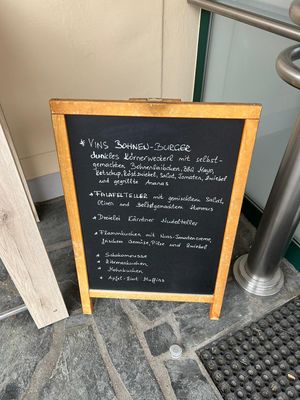 * VINS BOHNEN-BURGER
dunkles Körnerweckerl mit selbst-
gemachten Bohnenlaibchen, BBQ Mayo,
Ketschup, Röstzwiebel, Salat, Tomaten, Zwiebel
und gegrillte Ananas
* FALAFELTELLER mit gemischtem Salat,
Oliven und selbstgemachtem Hummus
* Dreierlei Kärntner Nudelteller
* Flammkuchen mit Nuss-Tomatencreme,
frischem Gemüse, Pilze und Zwiebel
* Schokomousse
* Zitronenkuchen
* Mohnkuchen
* Apfel-Zimt Muffins